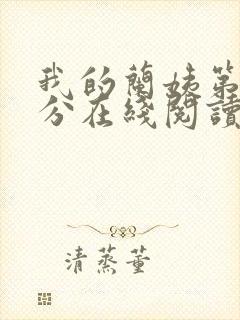 我的蘭姨第
分在綫閱讀
清蒸董